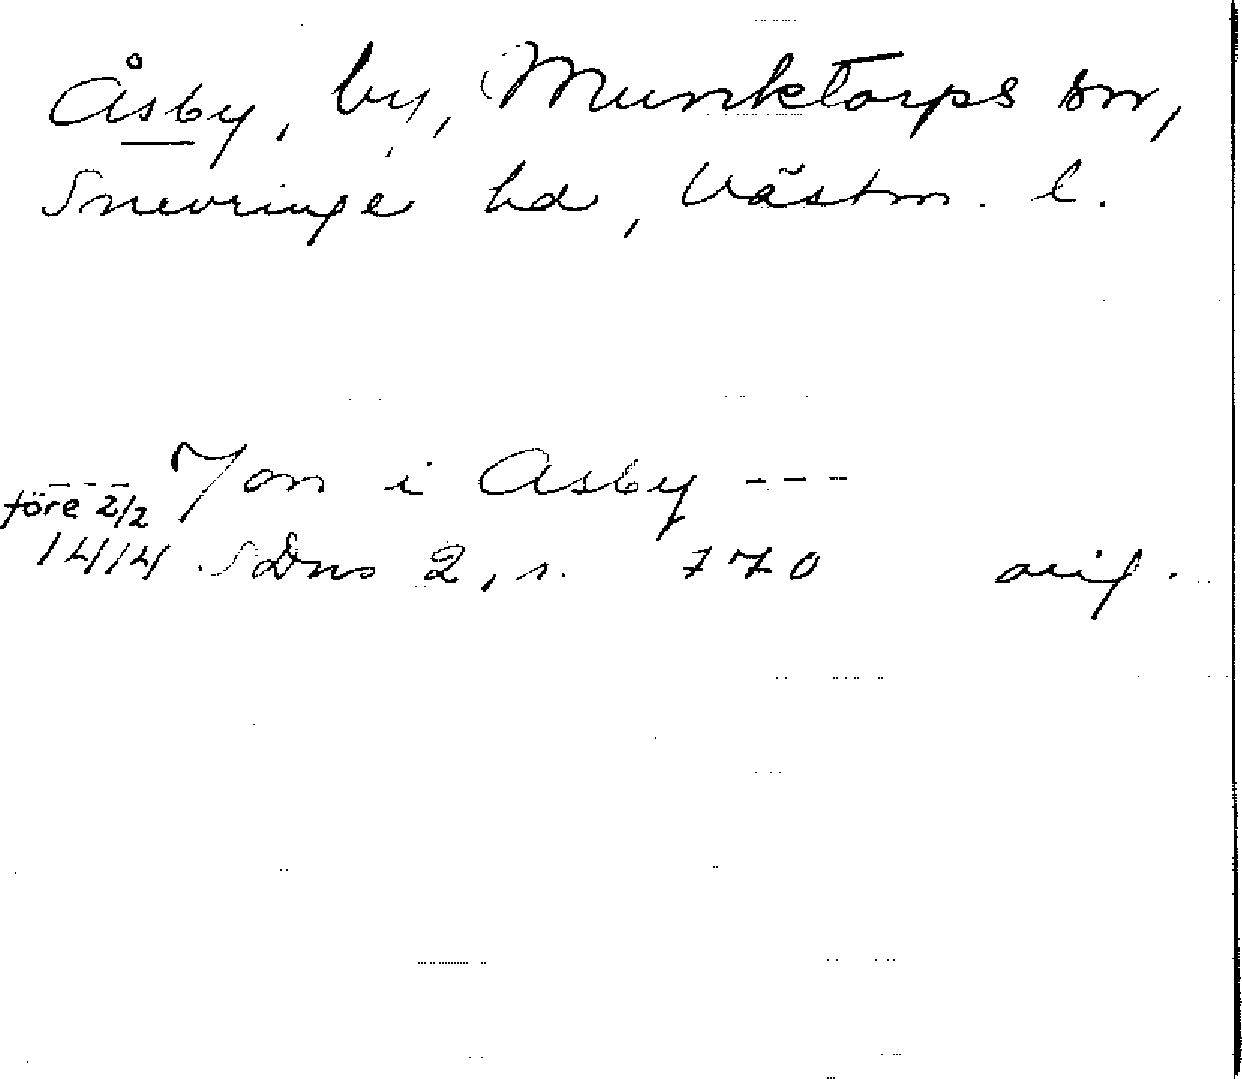 Åsby, by, Munktorps sn,
Snevringe hd, Västm. l.
--- Jon i Asby ---
före 2/2
1414 SDns 2, s. 770 orig.